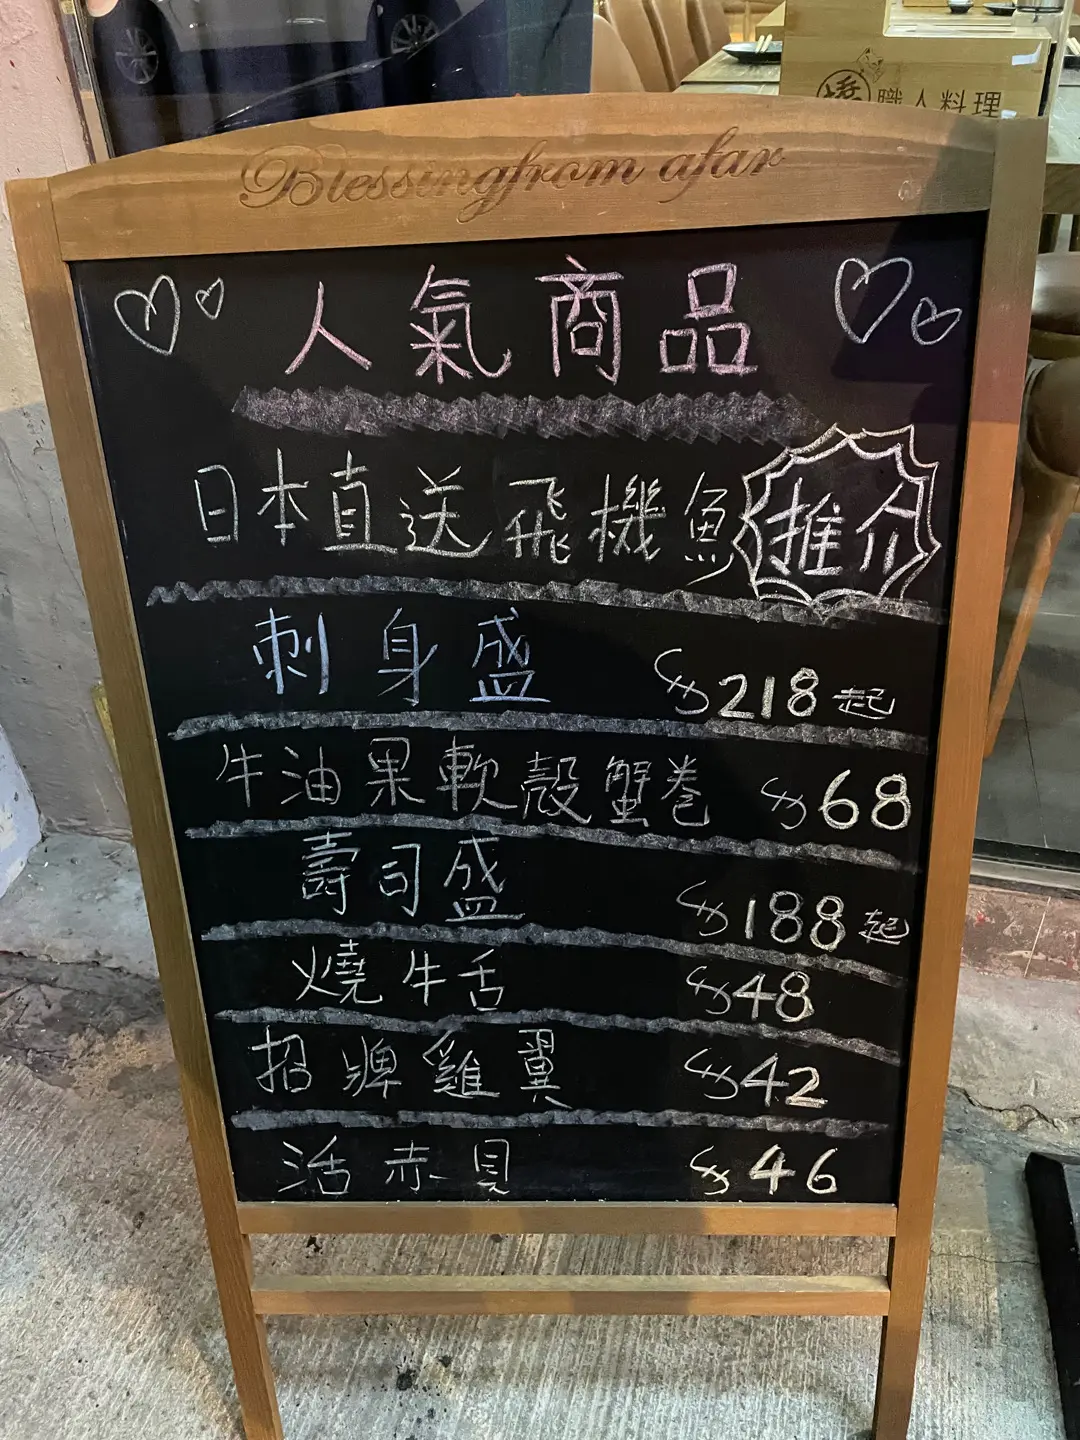 職人料理
Blessingfrom afar
人氣商品
日本直送飛機魚 推介
刺身盛 $218起
牛油果軟殼蟹卷 $68
壽司盛 $188起
燒牛舌 $48
招牌雞翼 $42
活赤貝 $46